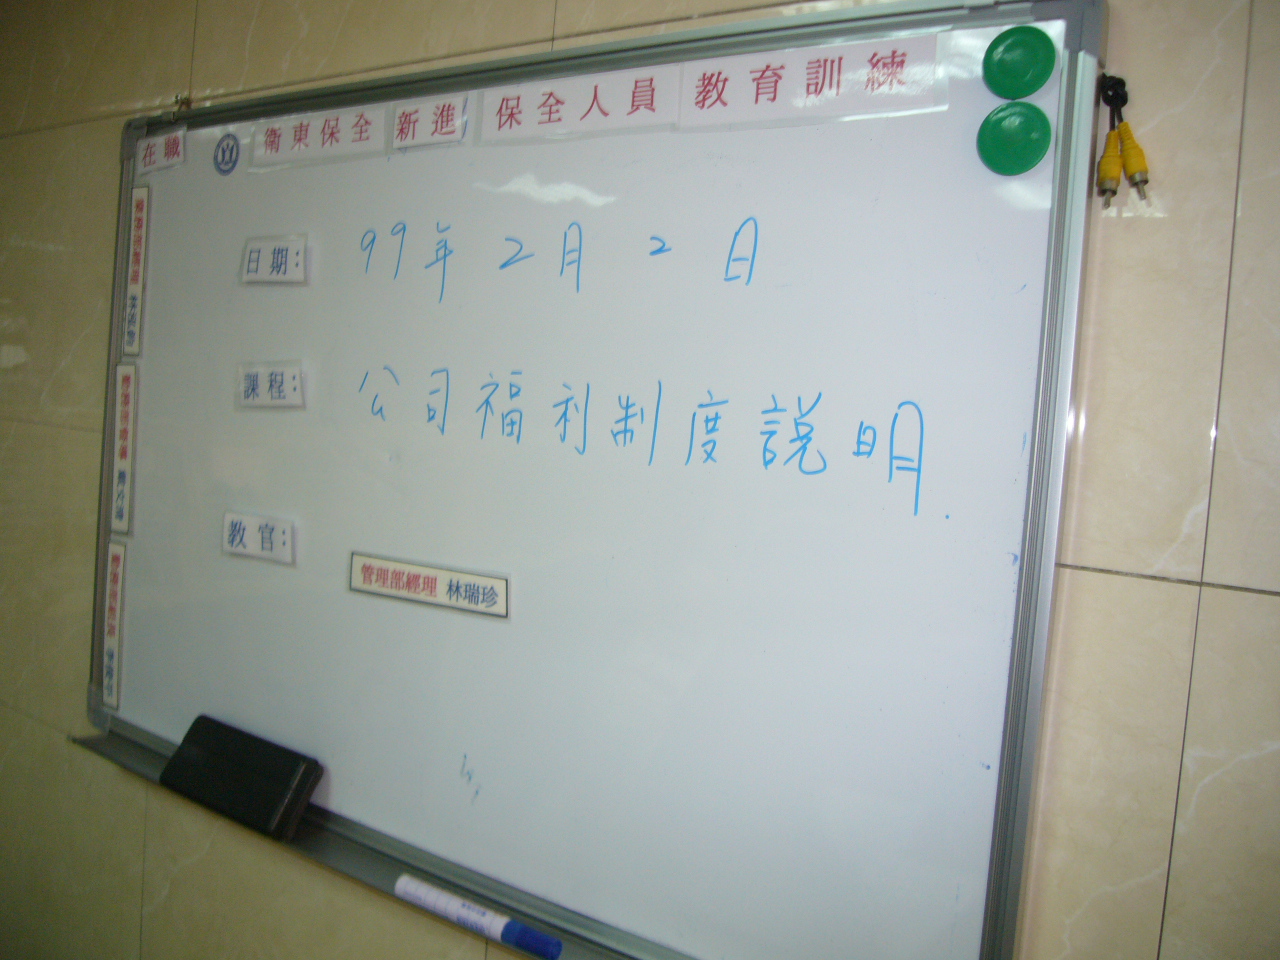 在職
衛東保全 新進 保全人員 教育訓練
日期: 99年2月2日
課程: 公司福利制度說明.
教官: 管理部經理 林瑞珍